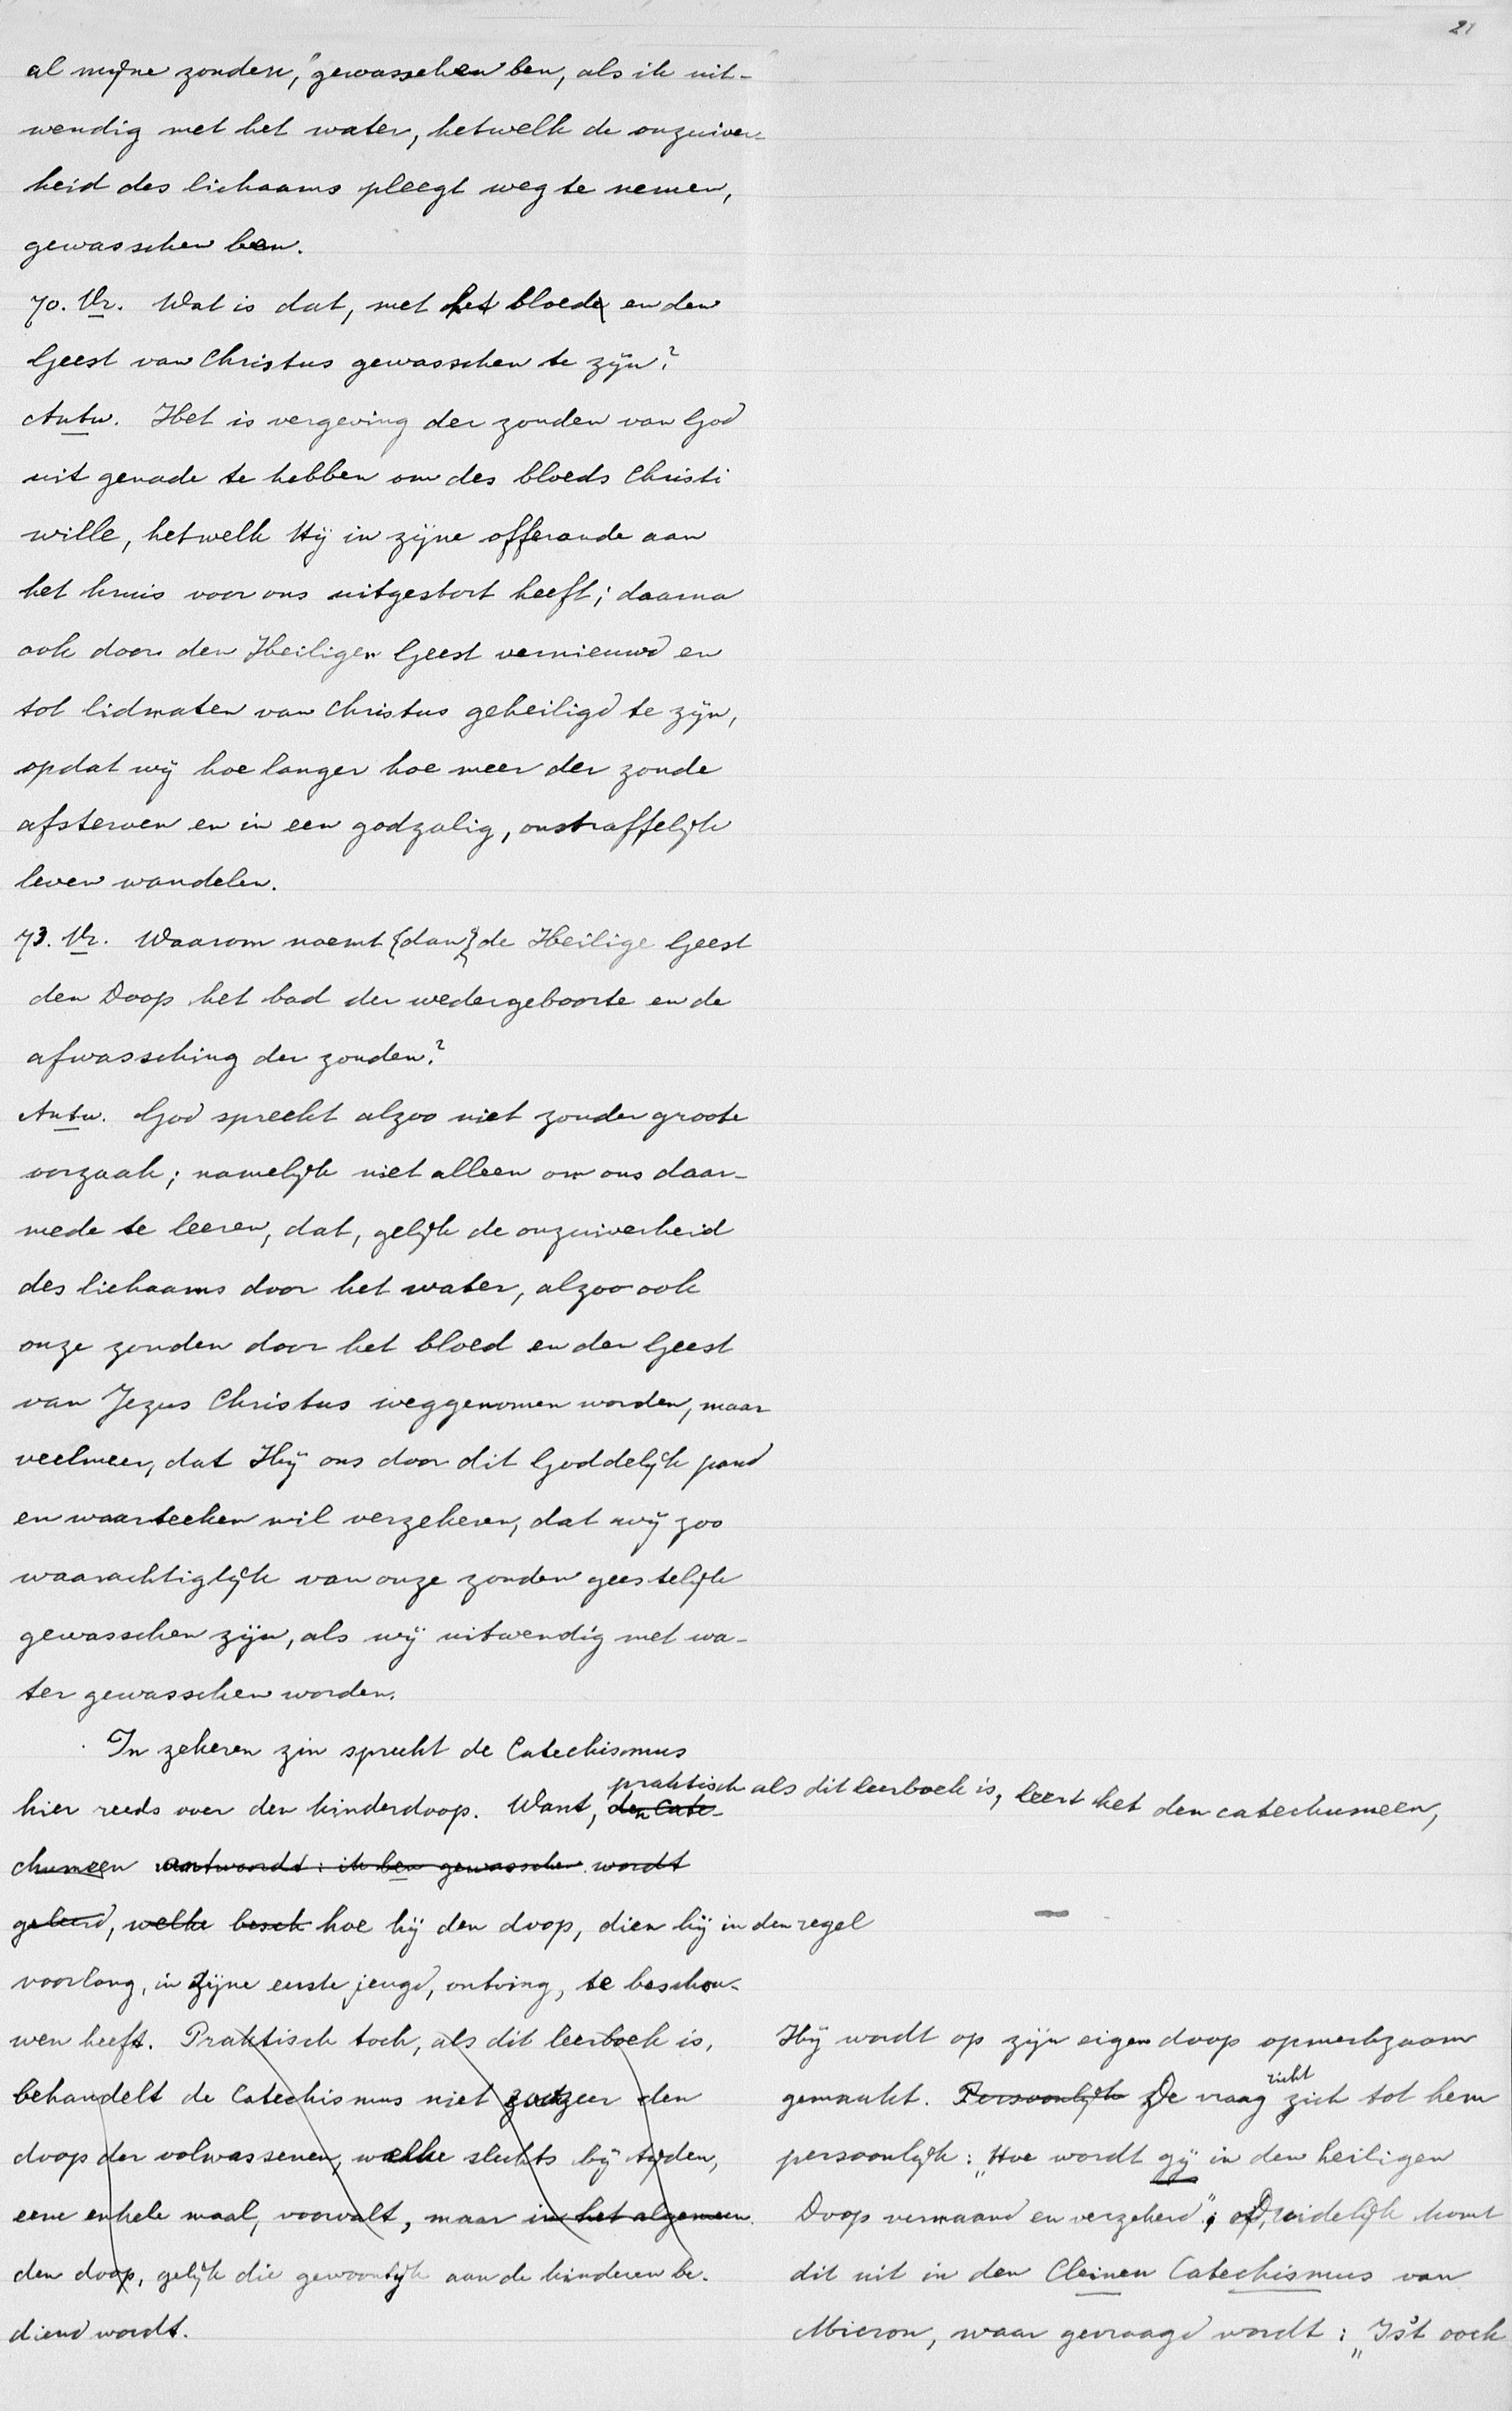 21
al mijne zonden," gewasschen ben, als ik uit-
wendig met het water, hetwelk de onzuiver-
heid des lichaams pleegt weg te nemen,
gewasschen ben.
70. Vr. Wat is dat, met het bloed en den
Geest van Christus gewasschen te zijn?
Antw. Het is vergeving der zonden van God
uit genade te hebben om des bloeds Christi
wille, hetwelk Hij in zijne offerande aan
het kruis voor ons uitgestort heeft; daarna
ook door den Heiligen Geest vernieuwd en
tot lidmaten van Christus geheiligd te zijn,
opdat wij hoe langer hoe meer der zonde
afsterven en in een godzalig, onstraffelijk
leven wandelen.
73. Vr. Waarom noemt {dan} de Heilige Geest
den Doop het bad der wedergeboorte en de
afwassching der zonden?
Antw. God spreekt alzoo niet zonder groote
oorzaak; namelijk niet alleen om ons daar-
mede te leeren, dat, gelijk de onzuiverheid
des lichaams door het water, alzoo ook
onze zonden door het bloed en den Geest
van Jezus Christus weggenomen worden, maar
veelmeer, dat Hij ons door dit Goddelijk pand
en waarteeken wil verzekeren, dat wij zoo
waarachtiglijk van onze zonden geestelijk
gewasschen zijn, als wij uitwendig met wa-
ter gewasschen worden.
In zekeren zin spreekt de Catechismus
praktisch als dit leerboek is, leert het den catechumeen,
hier reeds over den kinderdoop. Want, den Cate-
chumeen antwoordt: ik ben gewasschen wordt
geleerd, welke besch hoe hij den doop, dien hij in den regel
voorlang, in zijne eerste jeugd, ontving, te beschou-
wen heeft. Praktisch toch, als dit leerboek is,
behandelt de Catechismus niet zoozeer den
doop der volwassenen, welke slechts bij tijden,
eene enkele maal, voorvalt, maar in het algemeen
den doop, gelijk die gewoonlijk aan de kinderen be-
diend wordt.
Hij wordt op zijn eigen doop opmerkzaam
gemaakt. Persoonlijk De vraag richt zich tot hem
persoonlijk: „Hoe wordt gij in den heiligen
Doop vermaand en verzekerd"; Duidelijk komt
dit uit in den Cleinen Catechismus van
Micron, waar gevraagd wordt: „Is't oock